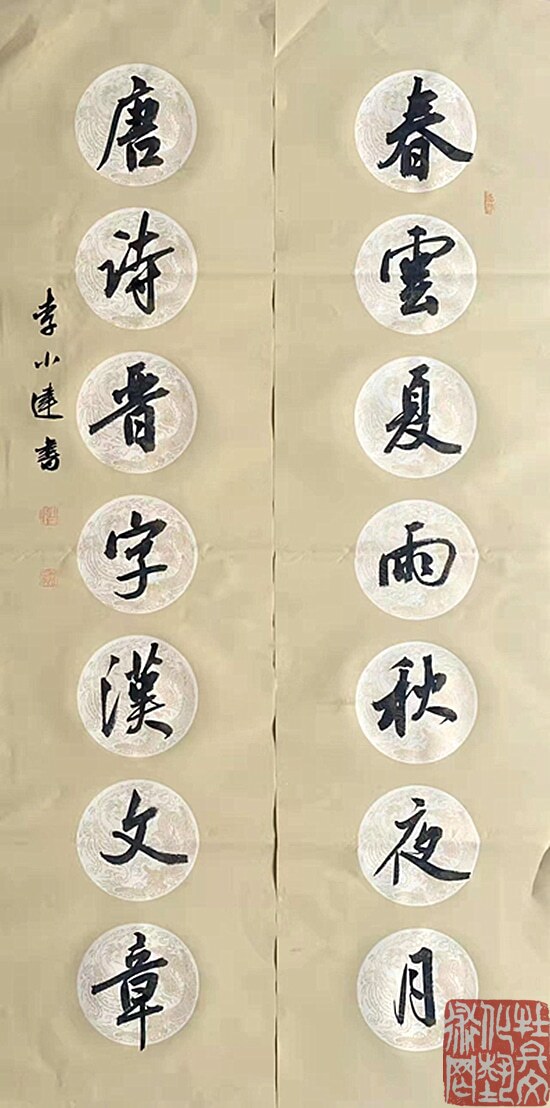 春雲夏雨秋夜月
唐詩晋字漢文章
李小建書